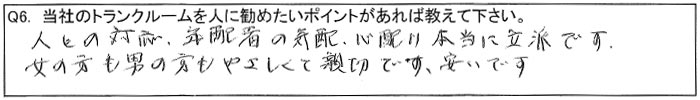 Q6. 当社のトランクルームを人に勧めたいポイントがあれば教えて下さい。
人との対応、年配者の気配、心配り本当に立派です.
女の方も男の方もやさしくて親切です、安いです